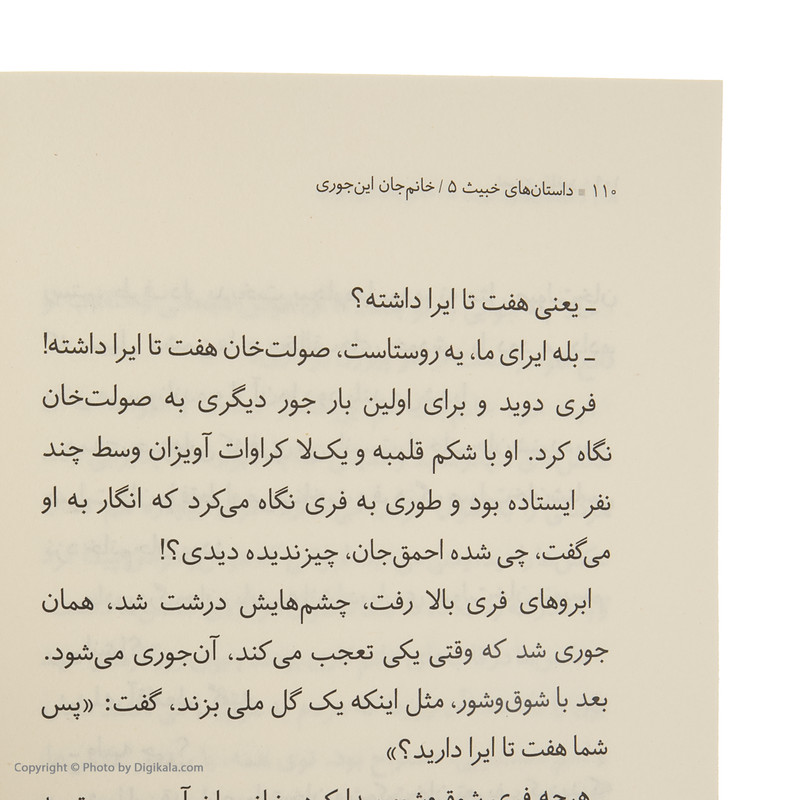 ۱۱۰ ▪ داستان‌های خبیث ۵ / خانم‌جان این‌جوری
ـ یعنی هفت تا ایرا داشته؟
ـ بله ایرای ما، یه روستاست، صولت‌خان هفت تا ایرا داشته!
فری دوید و برای اولین بار جور دیگری به صولت‌خان
نگاه کرد. او با شکم قلمبه و یک‌لا کراوات آویزان وسط چند
نفر ایستاده بود و طوری به فری نگاه می‌کرد که انگار به او
می‌گفت، چی شده احمق‌جان، چیزندیده دیدی؟!
ابروهای فری بالا رفت، چشم‌هایش درشت شد، همان
جوری شد که وقتی یکی تعجب می‌کند، آن‌جوری می‌شود.
بعد با شوق‌وشور، مثل اینکه یک گل ملی بزند، گفت: «پس
شما هفت تا ایرا دارید؟»
Copyright © Photo by Digikala.com